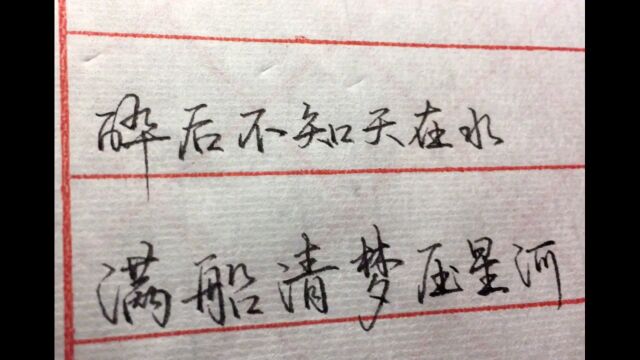 醉后不知天在水
满船清梦压星河